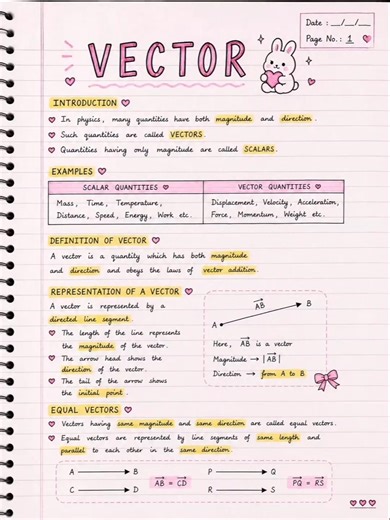 Date : __/__/__
Page No.: 1
VECTOR
INTRODUCTION
In physics, many quantities have both magnitude and direction.
Such quantities are called VECTORS.
Quantities having only magnitude are called SCALARS.
EXAMPLES
SCALAR QUANTITIES
VECTOR QUANTITIES
Mass, Time, Temperature,
Distance, Speed, Energy, Work etc.
Displacement, Velocity, Acceleration,
Force, Momentum, Weight etc.
DEFINITION OF VECTOR
A vector is a quantity which has both magnitude
and direction and obeys the laws of vector addition.
REPRESENTATION OF A VECTOR
A vector is represented by a
directed line segment.
The length of the line represents
the magnitude of the vector.
The arrow head shows the
direction of the vector.
The tail of the arrow shows
the initial point.
A
AB
B
Here, AB is a vector
Magnitude → |AB|
Direction → from A to B
EQUAL VECTORS
Vectors having same magnitude and same direction are called equal vectors.
Equal vectors are represented by line segments of same length and
parallel to each other in the same direction.
A → B
C → D
AB = CD
P → Q
R → S
PQ = RS